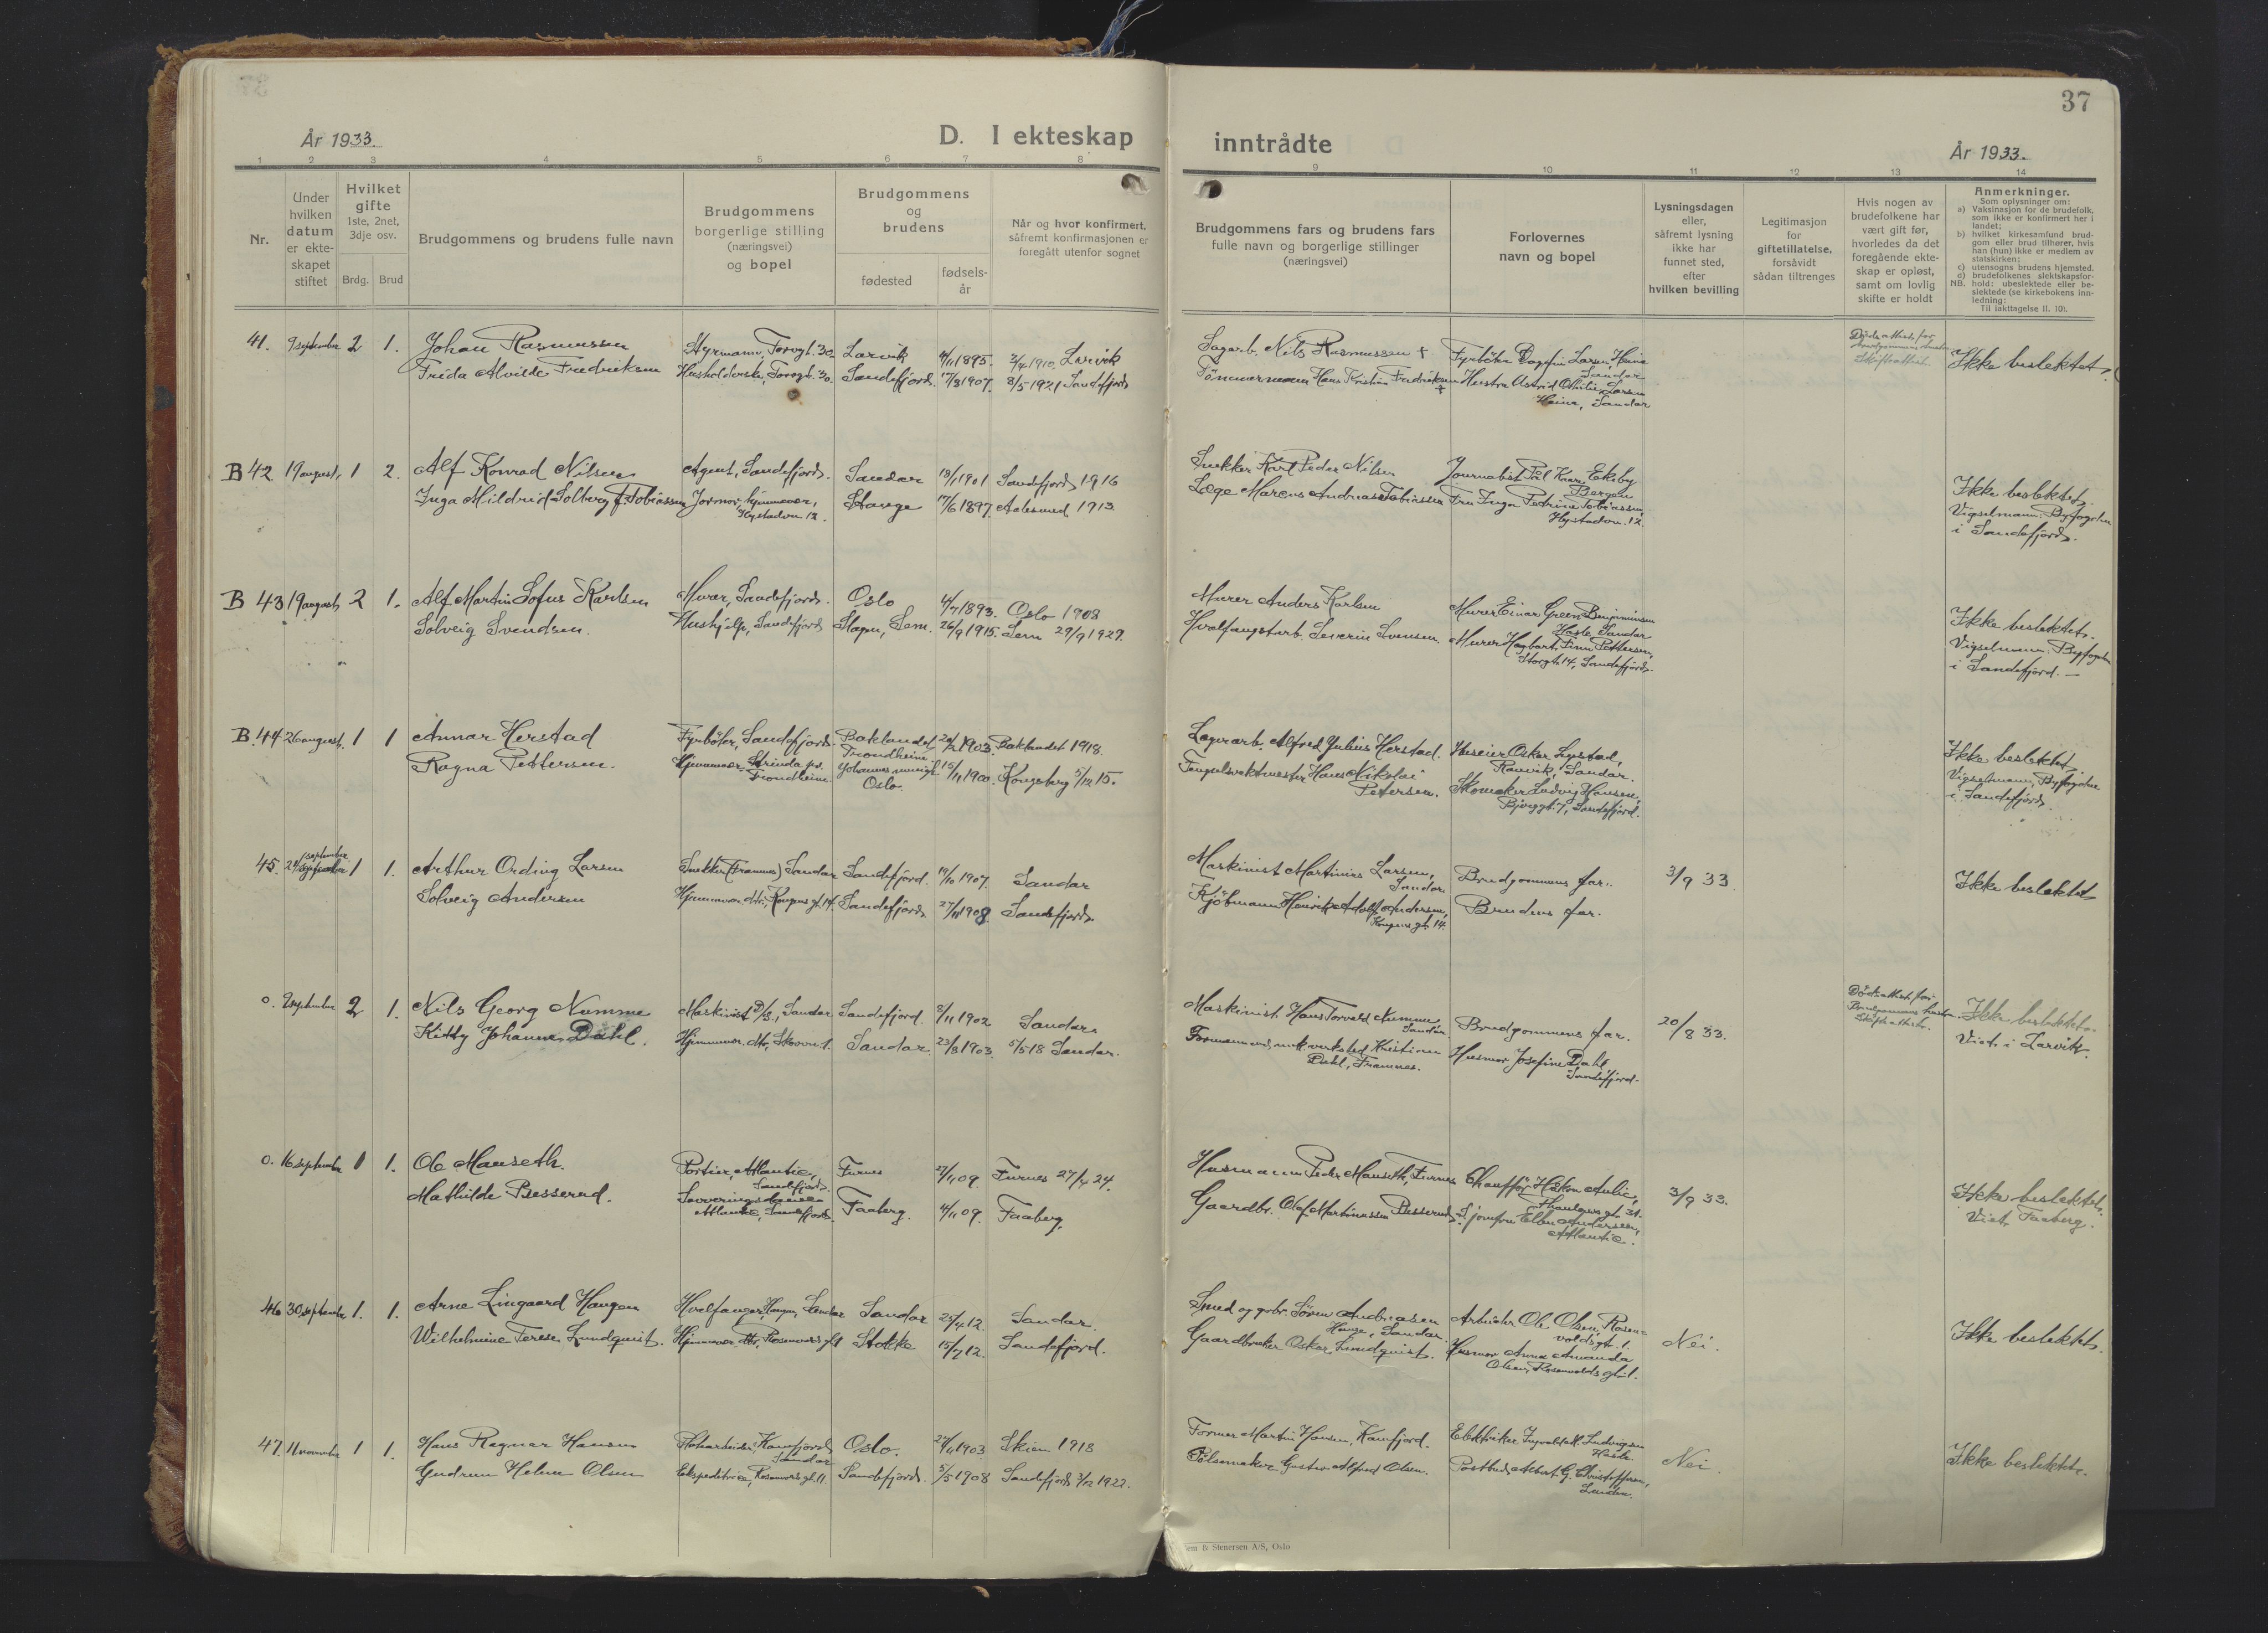 37
År 1933.
D. I ekteskap
inntrådte
År 1933.
1 2 3 4 5 6 7 8 9 10 11 12 13 14
Nr.
Under
hvilken
datum
er ekte-
skapet
stiftet
Hvilket
gifte
1ste, 2net,
3dje osv.
Brdg. Brud
Brudgommens og brudens fulle navn
Brudgommens
borgerlige stilling
(næringsvei)
og bopel
Brudgommens
og
brudens
fødested
fødsels-
år
Når og hvor konfirmert,
såfremt konfirmasjonen er
foregått utenfor sognet
Brudgommens fars og brudens fars
fulle navn og borgerlige stillinger
(næringsvei)
Forlovernes
navn og bopel
Lysningsdagen
eller,
såfremt lysning
ikke har
funnet sted,
efter
hvilken bevilling
Legitimasjon
for
giftetillatelse,
forsåvidt
sådan tiltrenges
Hvis nogen av
brudefolkene har
vært gift før,
hvorledes da det
foregående ekte-
skap er opløst,
samt om lovlig
skifte er holdt
Anmerkninger.
Som oplysninger om:
a) Vaksinasjon for de brudefolk,
som ikke er konfirmert her i
landet;
b) hvilket kirkesamfund brud-
gom eller brud tilhører, hvis
han (hun) ikke er medlem av
statskirken;
c) utensogns brudens hjemsted.
d) brudefolkenes slektskapsfor-
NB. hold: ubeslektede eller be-
slektede (se kirkebokens inn-
ledning:
Til iakttagelse II. 10).
41. 9 september 2 1. Johan Rasmussen
Styrmann, Torvgt. 30 Larvik 4/11 1895. 3/4 1910, Larvik
Sagarb. Nils Rasmussen † Fyrbøter Dagfin Larsen,
Sandar
Ikke beslektet.
Frida Alvilde Fredriksen Husholderske, Torvgt. 30. Sandefjord. 17/3 1907. 8/5 1921 Sandefjord
Tömmermann Hans Kristian Fredriksen † Hustru Astrid Othilie Larsen
Sandar
B 42 19 august, 1 2. Alf Konrad Nilsen
Agent, Sandefjord. Sandar 13/1 1901 Sandefjord 1916
Snekker Karl Peder Nilsen Journalist Pål Eksby
Bergen
Inga Mildrid Solberg f. Tobiassen Jormor, hjemmevær,
Hystadvn. 12. Stange 17/6 1897. Aalesund 1913
Læge Marcus Andreas Tobiassen Fru Inga Petrine Tobiassen,
Hystadvn. 12.
Ikke beslektet.
Vigselmann: Byfogden
i Sandefjord.
B 43 19 august 2 1. Alf Martin Sofus Karlsen
Murer, Sandefjord. Oslo 4/7 1893. Oslo 1908
Murer Anders Karlsen Murer Einar Green Benjaminsen
Hasle, Sandar
Solveig Svendsen.
Hushjelp, Sandefjord Slagen, Sem. 26/9 1915. Sem 29/9 1929.
Hvalfangstarb. Severin Svensen. Murer Hagbart Finn Pettersen,
Storgt. 14, Sandefjord.
Ikke beslektet.
Vigselmann: Byfogden
i Sandefjord. —
B. 44 26 august. 1 1 Annar Herstad
Fyrbøter, Sandefjord. Baklandet,
Trondheim 1903. Baklandet 1918.
Lagerarb. Alfred Julius Herstad. Huseier Oskar Lystad,
Ranvik, Sandar.
Ragna Pettersen.
Hjemmevær. Strinda pr.
Trondheim. Johannes menigh.
Oslo. 15/11 1900. Kongsberg 5/12 15.
Fengselsvaktmester Hans Nikolai
Petersen. Skomaker Ludvig Hansen,
Bjerggt. 7, Sandefjord.
Ikke beslektet
Vigselmann, Byfogden
i Sandefjord
45. september 1 1. Arthur Ording Larsen
Snekker (Framnes) Sandar Sandefjord. 19/10 1907. Sandar
Maskinist Martinius Larsen,
Sandar. Brudgommens far.
3/9 33.
Ikke beslektet
Solveig Andersen
Hjemmevær. dtr., Kongens gt. 14. Sandefjord 27/11 1908. Sandefjord
Kjöbmann Henrik Adolf Andersen,
Kongens gt. 14. Brudens far.
0. 9 september 2 1. Nils Georg Numme
Maskinist D/S, Sandar Sandefjord. 3/11 1902 Sandar
Maskinist Hans Torvald Numme
Sandar. Brudgommens far.
20/8 33.
Dödsattest for
Brudgommens hustru.
Skifteattest.
Kitty Johanne Dahl.
Hjemmevær. dtr, Skovvn 1. Sandar. 23/3 1903. 5/5 18 Sandar.
Formann ved mek. verksted Kristian
Dahl, Framnes. Husmor Josefine Dahl
Sandefjord.
Ikke beslektet.
Viet i Larvik.
0. 16 september 1 1. Ole Manseth.
Portier, Atlantic,
Sandefjord. Furnes 09. Furnes 27/4 24.
Husmann Peder Manseth, Furnes Chaufför Håkon Aulie,
Thaulows gt. 31.
3/9 33.
Mathilde Besserud.
Serveringsdame
Atlantic, Sandefjord. Faaberg. 4/11 09. Faaberg.
Gaardbr. Olaf Martinassen Besserud. Ellen Andersen,
Atlantic.
Ikke beslektet.
Viet Faaberg.
46 30. september 1. 1. Arne Lingaard Haugen
Hvalfanger, Haugen, Sandar Sandar 25/4 12. Sandar.
Smed og gvbr. Sören Andreasen
Sandar. Arbeider Ole Olsen, Rosen-
voldsgt. 1.
Nei.
Ikke beslektet.
Wilhelmine Terese Lundquist.
Hjemmevær. dtr, Rosenvoldsgt 1 Stokke 15/7 12. Sandefjord.
Gaardbruker Oskar Lundquist. Husmor Anna Amanda
Olsen, Rosenvolds gt. 1.
47. 11 november 1 1. Hans Ragnar Hansen
Kamfjord
Sandar Oslo. 1903 Skien 1918
Former Martin Hansen, Kamfjord. Elektriker Ludvigsen
Hasle
Nei.
Ikke beslektet.
Gudrun Helene Olsen
Ekspeditrice, Rosenvolds gt. 11 Sandefjord. 5/5 1908 Sandefjord 3/12 1922.
Pölsemaker Gustav Alfred Olsen. Postbud Albert G. Christoffersen,
Lunden.
em & Stenersen A/S, Oslo